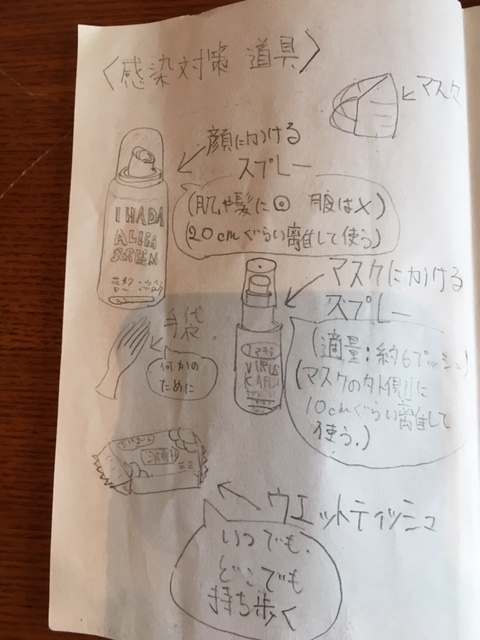 〈感染対策 道具〉
マスク
顔にかける
スプレー
(肌や髪に◎ 服は×)
20cmぐらい離して使う)
I HADA
ALLER
SCREEN
マスクにかける
スプレー
適量:約6プッシュ
(マスクの外側に
10cmぐらい離して
使う。)
VIRUS
手袋
何かの
ために
ウエットティッシュ
いつでも、
どこでも
持ち歩く